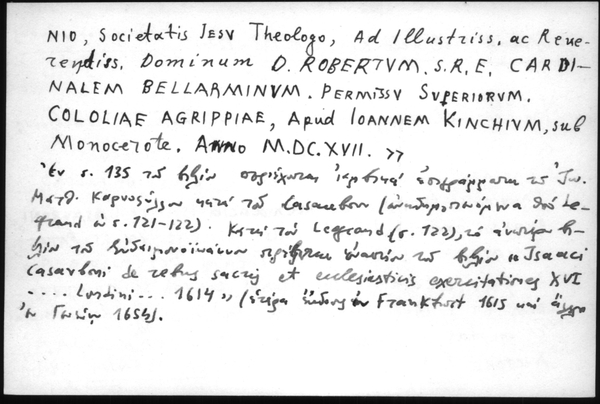 NIO, Societatis IESV Theologo, Ad Illustriss. ac Reve-
rendiss. Dominum D. ROBERTVM. S.R.E. CARDI-
NALEM BELLARMINVM. PERMISSV SVPERIORVM.
COLOLIAE AGRIPPIAE, Apud IOANNEM KINCHIVM, sub
Monocerote. ANNO M.DC.XVII. »
Ἐν σ. 135 τοῦ βιβλίου περιέχονται ἰαμβικά ἐπιγράμματα τοῦ Ἰω.
Ματθ. Καρυοφύλλου κατά τοῦ Casaubon (ἀναδημοσιευόμενα ὑπό Le-
grand ἐν σ. 121-122). Κατά τόν Legrand (σ. 122), τό ἀνωτέρω βι-
βλίον τοῦ Εὐδαιμονοϊωάννου στρέφεται ἐναντίον τοῦ βιβλίου « Isaaci
Casauboni de rebus sacris et ecclesiasticis exercitationes XVI
.... Londini ... 1614 » (ἑτέρα ἔκδοσις ἐν Frankfort 1615 καί ἄλλη
ἐν 1654).